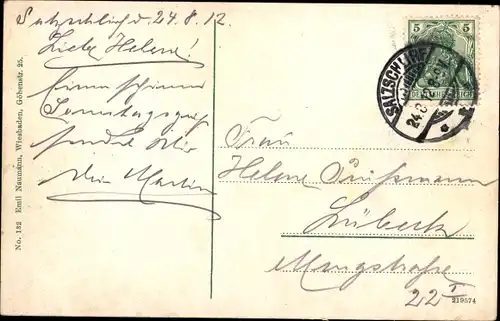 Salzschlirf d. 24.8.12.
Liebe Helene!
Einen schönen
Sonntagsgruß
sendet Dir
Dein Martin
No. 132 Emil Naumann, Wiesbaden, Göbenstr. 25.
5 5
DEUTSCHES REICH
SALZSCHLIRF
24.8.12
Frau
Helene
Lübeck
22 I
219574